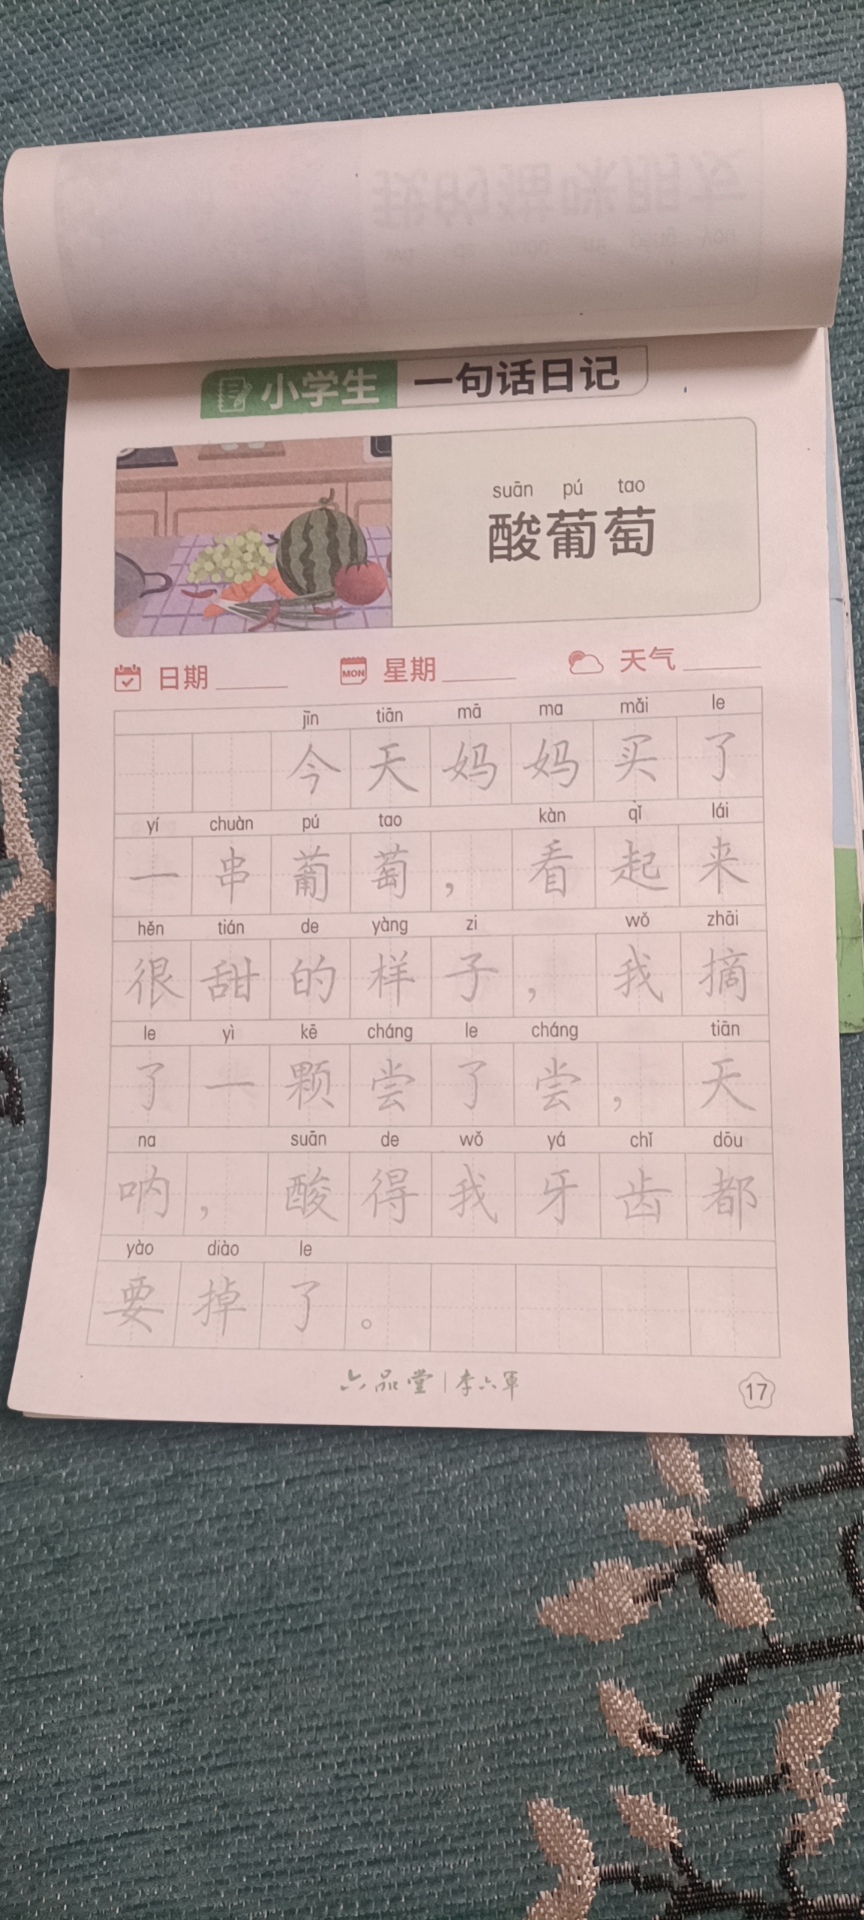 小学生 一句话日记
suān pú tao
酸葡萄
日期 星期 天气
MON
jīn tiān mā ma mǎi le
今天妈妈买了
yí chuàn pú tao kàn qǐ lái
一串葡萄，看起来
hěn tián de yàng zi wǒ zhāi
很甜的样子，我摘
le yì kē cháng le cháng tiān
了一颗尝了尝，天
na suān de wǒ yá chǐ dōu
呐，酸得我牙齿都
yào diào le
要掉了。
六品堂 | 李六軍
17